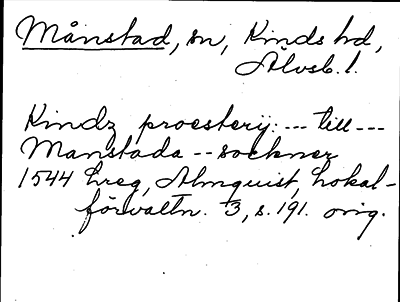 Månstad, sn, Kinds hd,
Älvsb. l.
Kindz proesterij: --- till ---
Manstada -- sockner
1544 hreg, Almquist, Lokal-
förvaltn. 3, s. 191. orig.